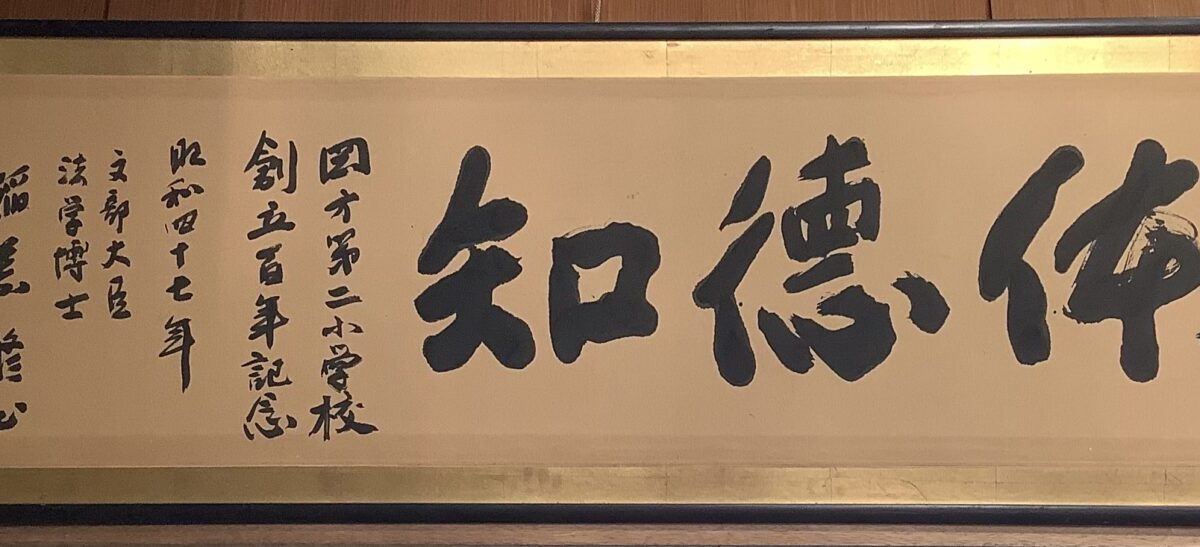 体徳知
岡方第二小学校
創立百年記念
昭和四十七年
文部大臣
法学博士
稲葉修書